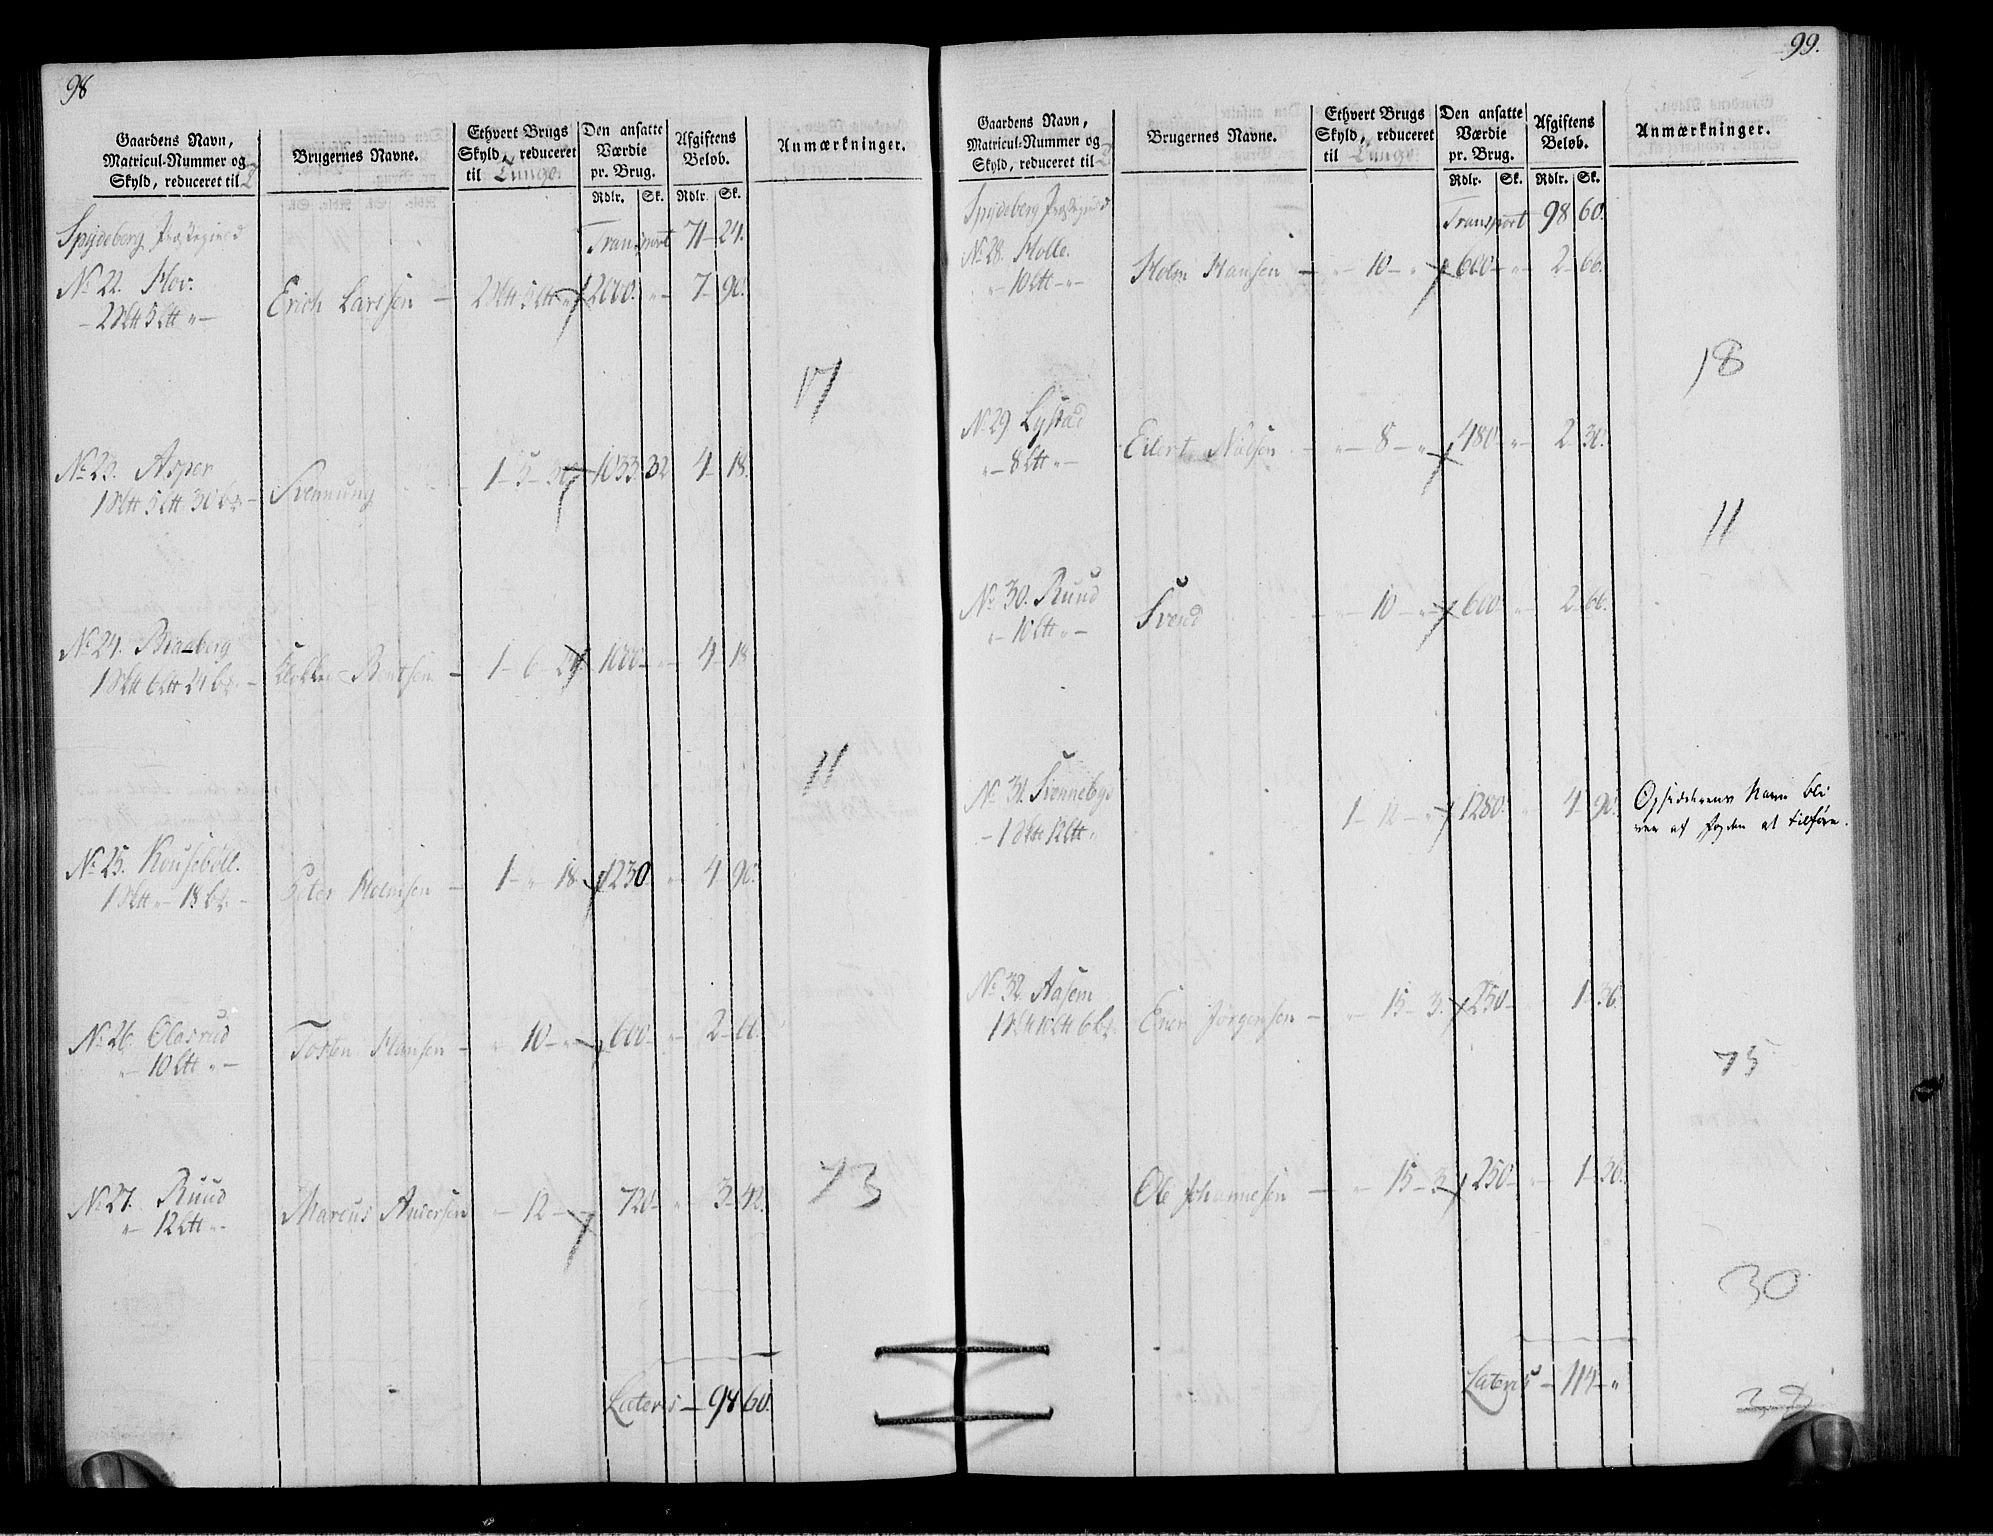 98
Gaardens Navn,
Matricul-Nummer og
Skyld, reduceret til
Brugernes Navne.
Ethvert Brugs
Skyld, reduceret
til Tunge
Den ansatte
Værdie
pr. Brug.
Rdlr. Sk.
Afgiftens
Beløb.
Rdlr. Sk.
Anmærkninger.
Spydeberg Præstegield Transport 71 - 24.
No 22. Hov. Erich Larssen - 2 5 2000 - " - 7 - 90.
17
No 23. Asper Svennung 1 - 5 - 30 1033 32 4 - 18.
No 24. Braaberg Bentsen - 1 - 6 - 24 1000 - 4 - 18
11
No 25. Knusebøll. Peter Holmsen - 1 - " 18 1230 " 4 - 90.
No 26. Olasrud Tosten Hansen - " 10 - " - 600 - " 2 - 66.
No 27. Ruud Marcus Andersen - 12 - 720 - " 3 - 42.
73
Lateris - 98 60.
99.
Gaardens Navn,
Matricul-Nummer og
Skyld, reduceret til
Brugernes Navne.
Ethvert Brugs
Skyld, reduceret
til Tunge
Den ansatte
Værdie
pr. Brug.
Rdlr. Sk.
Afgiftens
Beløb.
Rdlr. Sk.
Anmærkninger.
Spydeberg Præstegield Transport 98 60.
No 28. Holm Hansen - " - 10 - " 600 - " - 2 - 66.
18
No 29 Lystad Eilert Nielsen - " - 8 - " 480 - " - 2 - 30.
11
No 30. Ruud Svend - " - 10 - " 600 - " - 2 - 66.
No 31. Svennebye 1 - 12 - " 1280 - " 4 - 90. Opsidderens Navn bli
ver af Fogden at tilføre.
No 32. Aasem Ener Jørgensen - " 15 - 3. 250 - 1 - 36
75
Ole Johannesen - " 15 - 3. 250 - " 1 - 36.
30
Lateris - 114 - "